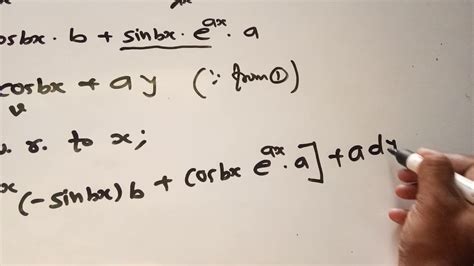 osbx · b + sinbx · e^{ax} · a
cosbx + ay (∵ from ①)
r. to x;
(-sinbx) b + cosbx e^{ax} · a] + a dy